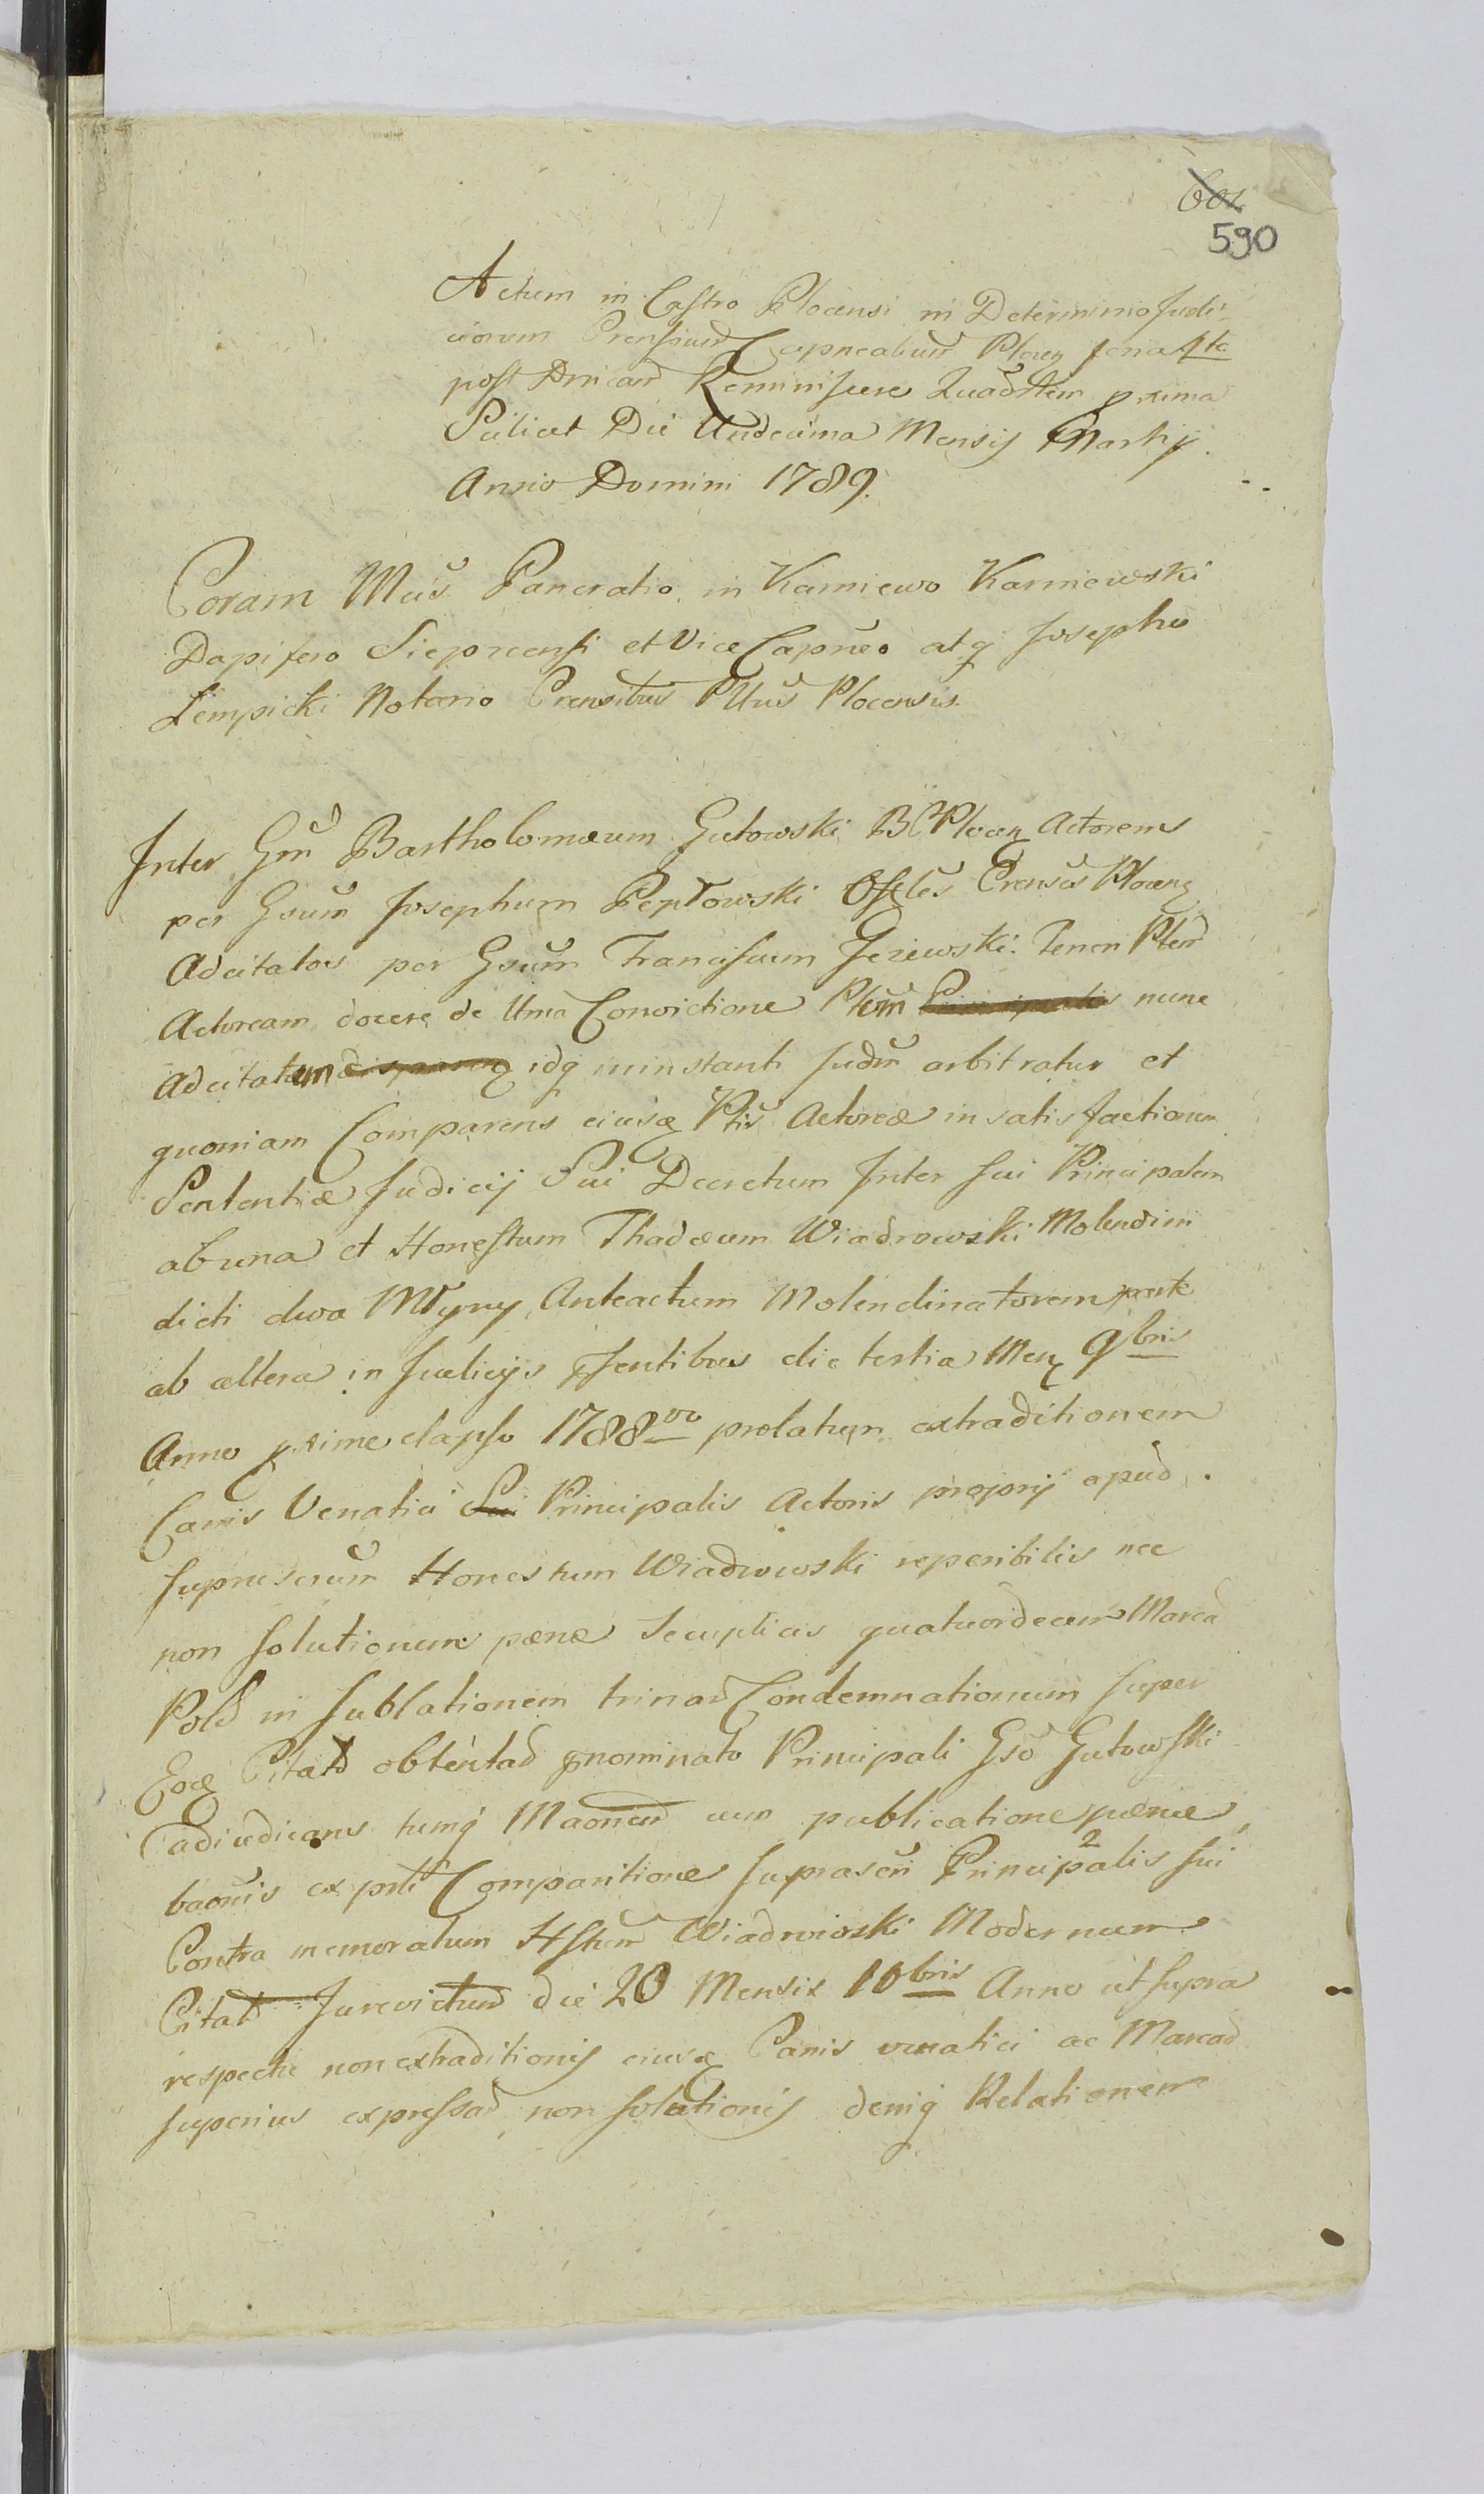 601
590
Actum in Castro Plocensi in Determino Judi-
ciorum Crensium Capnealium Plocen feria 4ta
post Dnicam Reminiscere Quadlem proxima
Scilicet Die Undecima Mensis Martij.
Anno Domini 1789.
Coram Mcis Pancratio in Karniewo Karniewski
Dapifero Sieprcensi et Vice Capneo atq Josepho
Lempicki Notario Crensibus Pltus Plocensis.
Inter Gm Bartholomæum Gutowski B Plocen Actorem
per Gsum Josephum Peplowski Offles Crensis Plocen
Adcitatos per Gsum Franciscum Jezewski. Teneri Ptem
Actoream docere de Uma Convictione Ptem nunc
Adcitatum idq in instanti Judm arbitratur et
quoniam Comparens eiusq Ptis Actoreæ in satisfactionem
Sententiæ Judicij Sui Decretum Inter sui Principalem
ab una et Honestum Thadæum Wiadrowski Molendini
dicti dwa Młyny, Anteactum Molendinatorem parte
ab altera in Judicijs psentibus die tertia Men 9bris
Anno pxime elapso 1788vo prolatum extraditionem
Canis Venatici Sui Principalis Actoris proprij apud
suprascrum Honestum Wiadrowski reperibilis nec
non solutionem pænæ secuplicis quatuordecim Marcar
Pold in sublationem trinar Condemnationum super
Eoq Citato obtentar pnominato Principali Gso Gutowski
adiudicans tumq cum publicatione pænæ,
baonis ex prti Comparitione suprascri Principalis sui
Contra memoratum Hstum Wiadrowski Modernum
Citat Jurevictum die 20 Mensis 10bris Anno ut supra
respectu non extraditionis eiusq Canis venatici ac Marcar
superius expressar non solutionis deniq Relationem